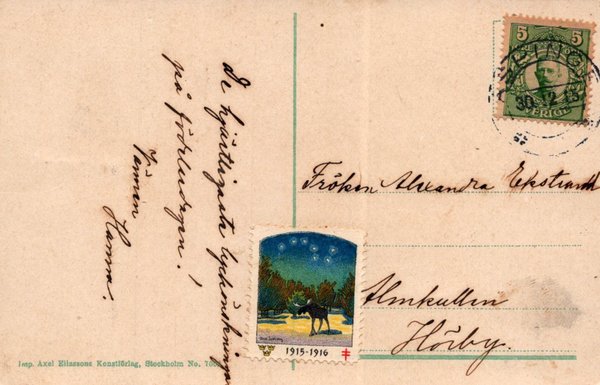 De hjärtligaste lyckönskningar
på födelsedagen!
Vännen
Hanna.
5 5
30.12.15
SVERIGE
Fröken Alexandra Ekstrand
Almkullen
Hörby.
1915-1916
Imp. Axel Eliassons Konstförlag, Stockholm No.